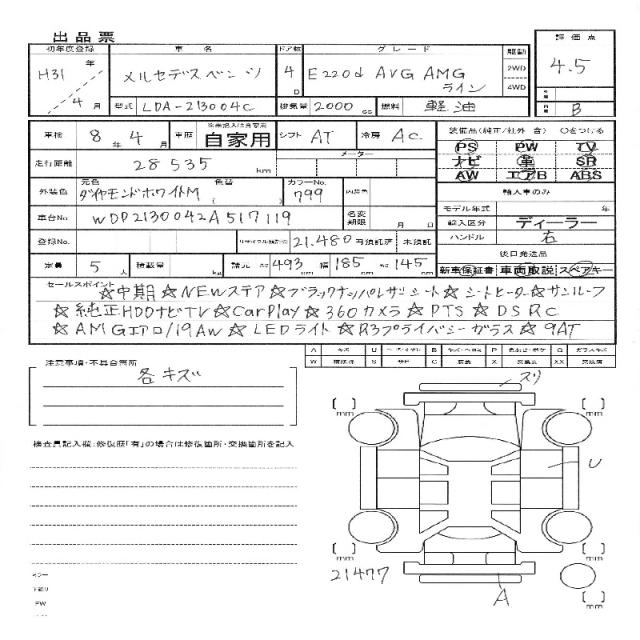 出品票
初年度登録 車名 ドア数 グレード 駆動 評価点
H31年 4月 メルセデスベンツ 4D E220d AVG AMG ライン 2WD 4WD 4.5
型式 LDA-213004C 排気量 2000cc 燃料 軽油 B
車検 8年4月 車歴 自家用 シフト AT 冷房 AC. 装備品(純正/社外 含) ○をつける
PS PW TV
走行距離 28535km メーター ナビ 革 SR
AW エアB ABS
外装色 元色 ダイヤモンドホワイトM 色替 ( ) カラーNo. 799 内装色 輸入車のみ
モデル年式 年
車台No. WDD2130042A517119 名変期限 月 日 記入区分 ディーラー
登録No. リサイクル預託金 21.480円預託済 未預託 ハンドル 右
後日発送品
定員 5人 積載量 kg 諸元 長さ 493 幅 185 高さ 145cm 新車保証書 車両取説 スペアキー
セールスポイント
☆中期 ☆NEWステア ☆ブラックナッパレザーシート ☆シートヒーター ☆サンルーフ
☆純正HDDナビTV ☆CarPlay ☆360カメラ ☆PTS ☆DSRC
☆AMGエアロ/19AW ☆LEDライト ☆R3プライバシーガラス ☆9AT
注意事項・不具合箇所
各キズ
スリ
検査員記入欄:修復歴「有」の場合は修復箇所・交換箇所を記入
[ ]mm [ ]mm
U
[ ]mm [ ]mm
21477
A
[ ]mm